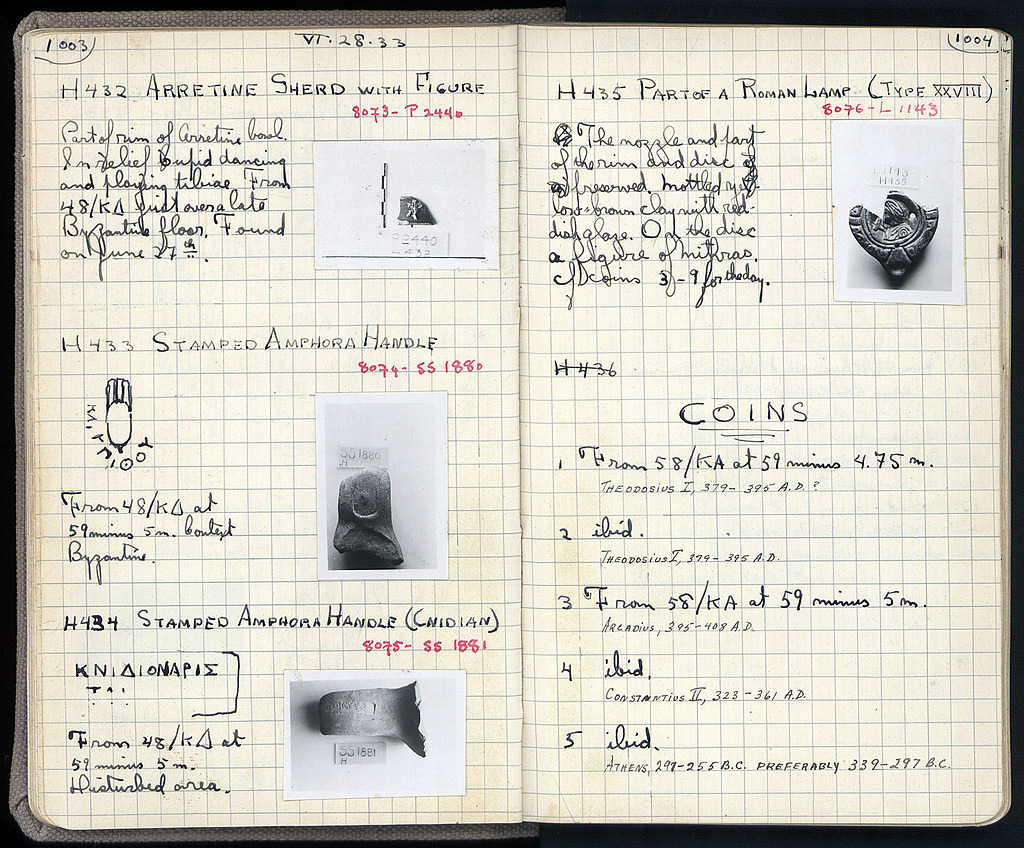 1003
VI. 28. 33
H 432 ARRETINE SHERD WITH FIGURE
8073 - P 2440
Part of rim of Arretine bowl.
In relief Cupid dancing
and playing tibiae. From
48/ΚΔ just over a late
Byzantine floor. Found
on June 27th.
P2440
H 432
H 433 STAMPED AMPHORA HANDLE
8074 - SS 1880
SS 1880
H
From 48/ΚΔ at
59 minus 5 m. Context
Byzantine.
H434 STAMPED AMPHORA HANDLE (CNIDIAN)
8075 - SS 1881
ΚΝΙΔΙΟΝΑΡΙΣ
SS 1881
H
From 48/ΚΔ at
59 minus 5 m.
Disturbed area.
1004
H 435 PART OF A ROMAN LAMP (TYPE XXVIII)
8076 - L 1143
The nozzle and part
of the rim and disc
preserved. Mottled yel-
low-brown clay with red-
dish glaze. On the disc
a figure of Mithras.
cf coins 3 - 9 for the day.
L 1143
H 435
H 436
COINS
1 From 58/ΚΑ at 59 minus 4.75 m.
THEODOSIUS I, 379 - 395 A.D. ?
2 ibid.
THEODOSIUS I, 379 - 395 A.D.
3 From 58/ΚΑ at 59 minus 5 m.
ARCADIUS, 395 - 408 A.D.
4 ibid.
CONSTANTIUS II, 323 - 361 A.D.
5 ibid.
ATHENS, 297 - 255 B.C. PREFERABLY 339 - 297 B.C.